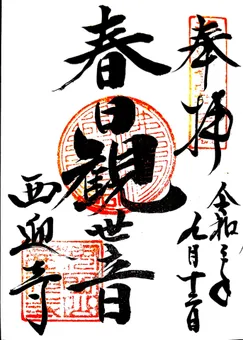 奉拝
令和三年
九月十二日
春日
観世音
西迎寺